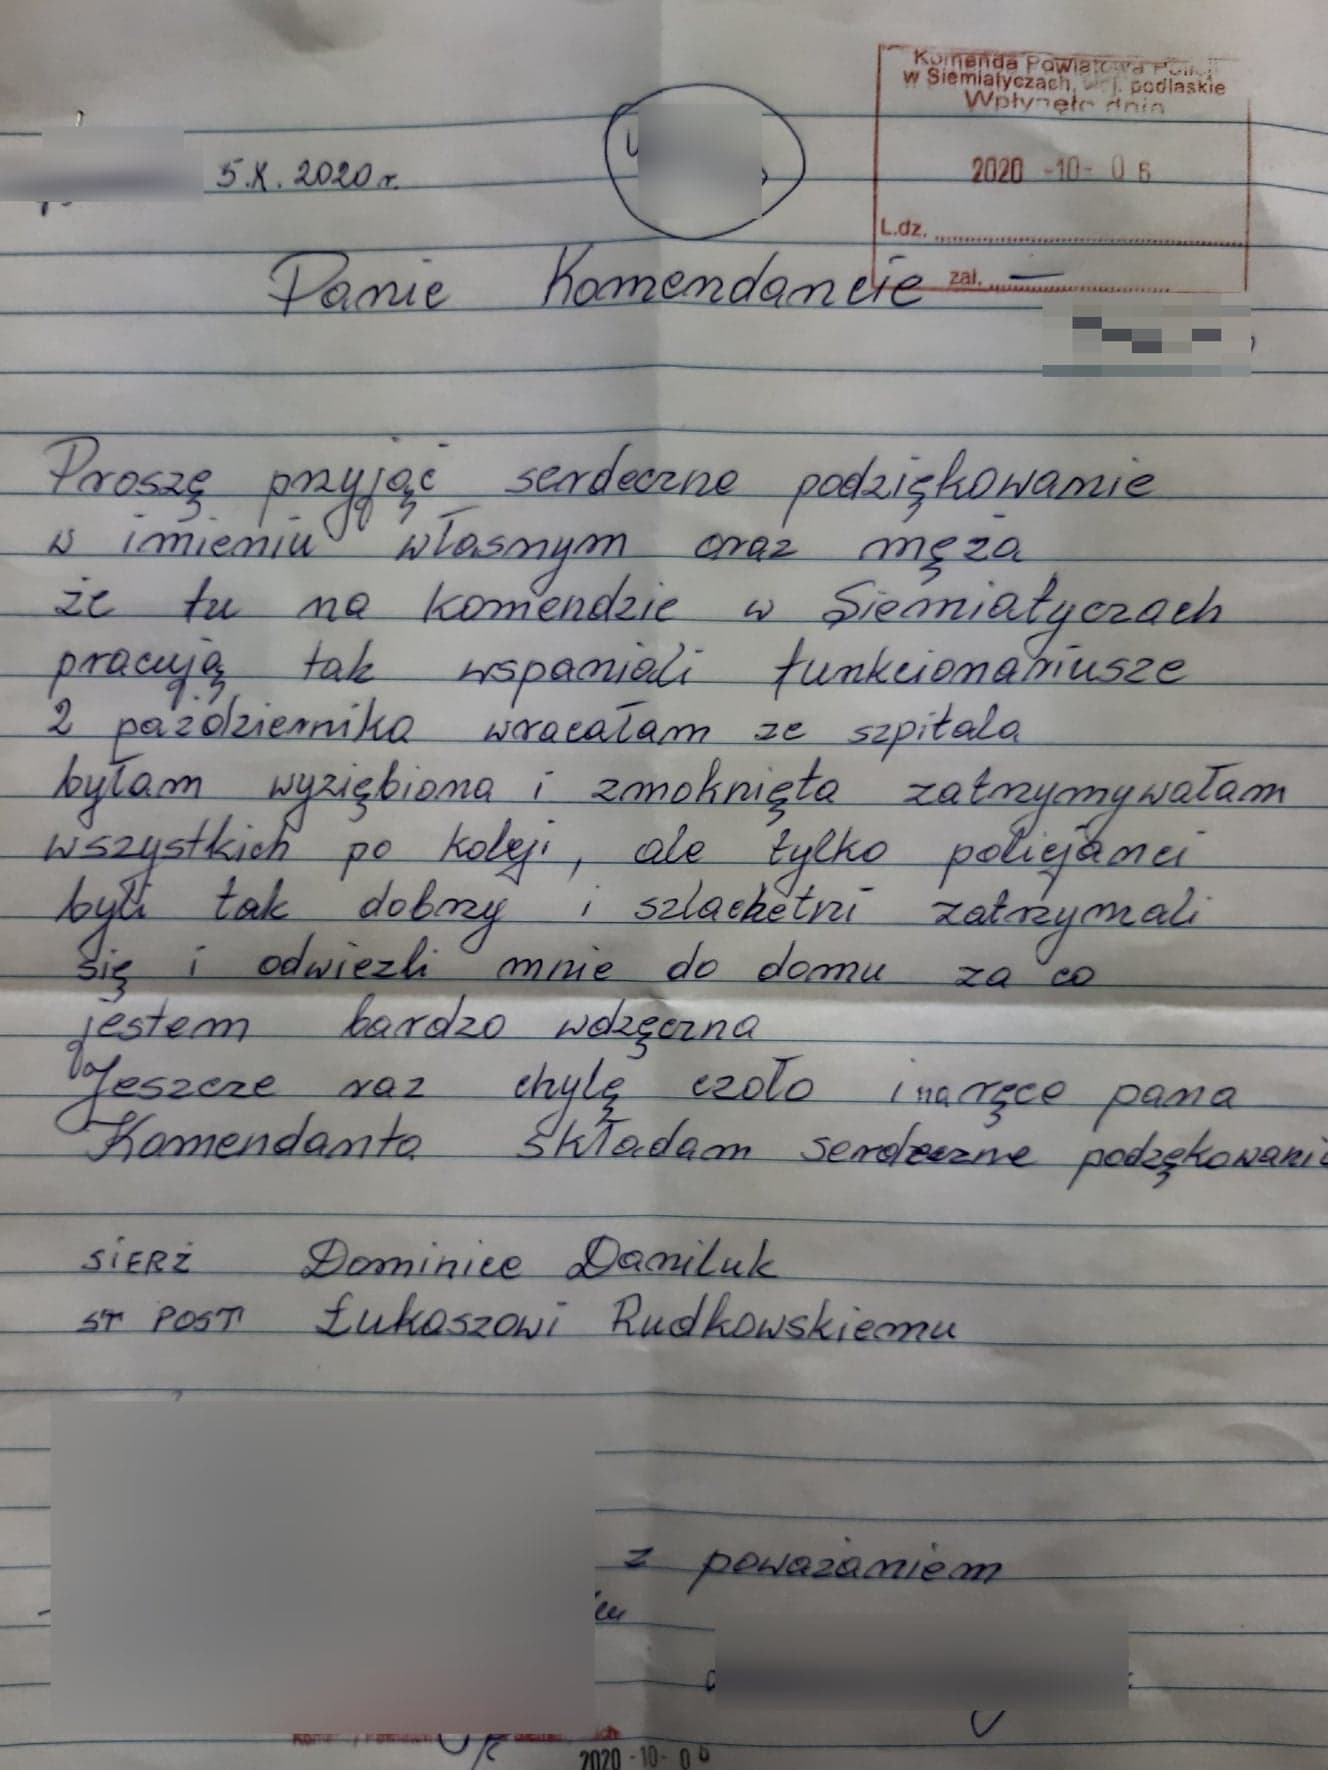 Komenda Powiatowa Policji
w Siemiatyczach, woj. podlaskie
Wpłynęło dnia
2020 -10- 06
L.dz.
zał. —
5.X.2020r.
Panie Komendancie
Proszę przyjąć serdeczne podziękowanie
w imieniu własnym oraz męża
że tu na komendzie w Siemiatyczach
pracują tak wspaniali funkcionariusze
2 października wracałam ze szpitala
byłam wyziębiona i zmoknięta zatrzymywałam
wszystkich po koleji, ale tylko policjanci
byli tak dobrzy i szlachetni zatrzymali
się i odwiezli mnie do domu za co
jestem bardzo wdzęczna
Jeszcze raz chylę czoło i na ręce pana
Komendanta składam serdeczne podzękowanie
SIERŻ Dominice Daniluk
ST POST Łukaszowi Rudkowskiemu
z poważaniem
2020 -10- 06